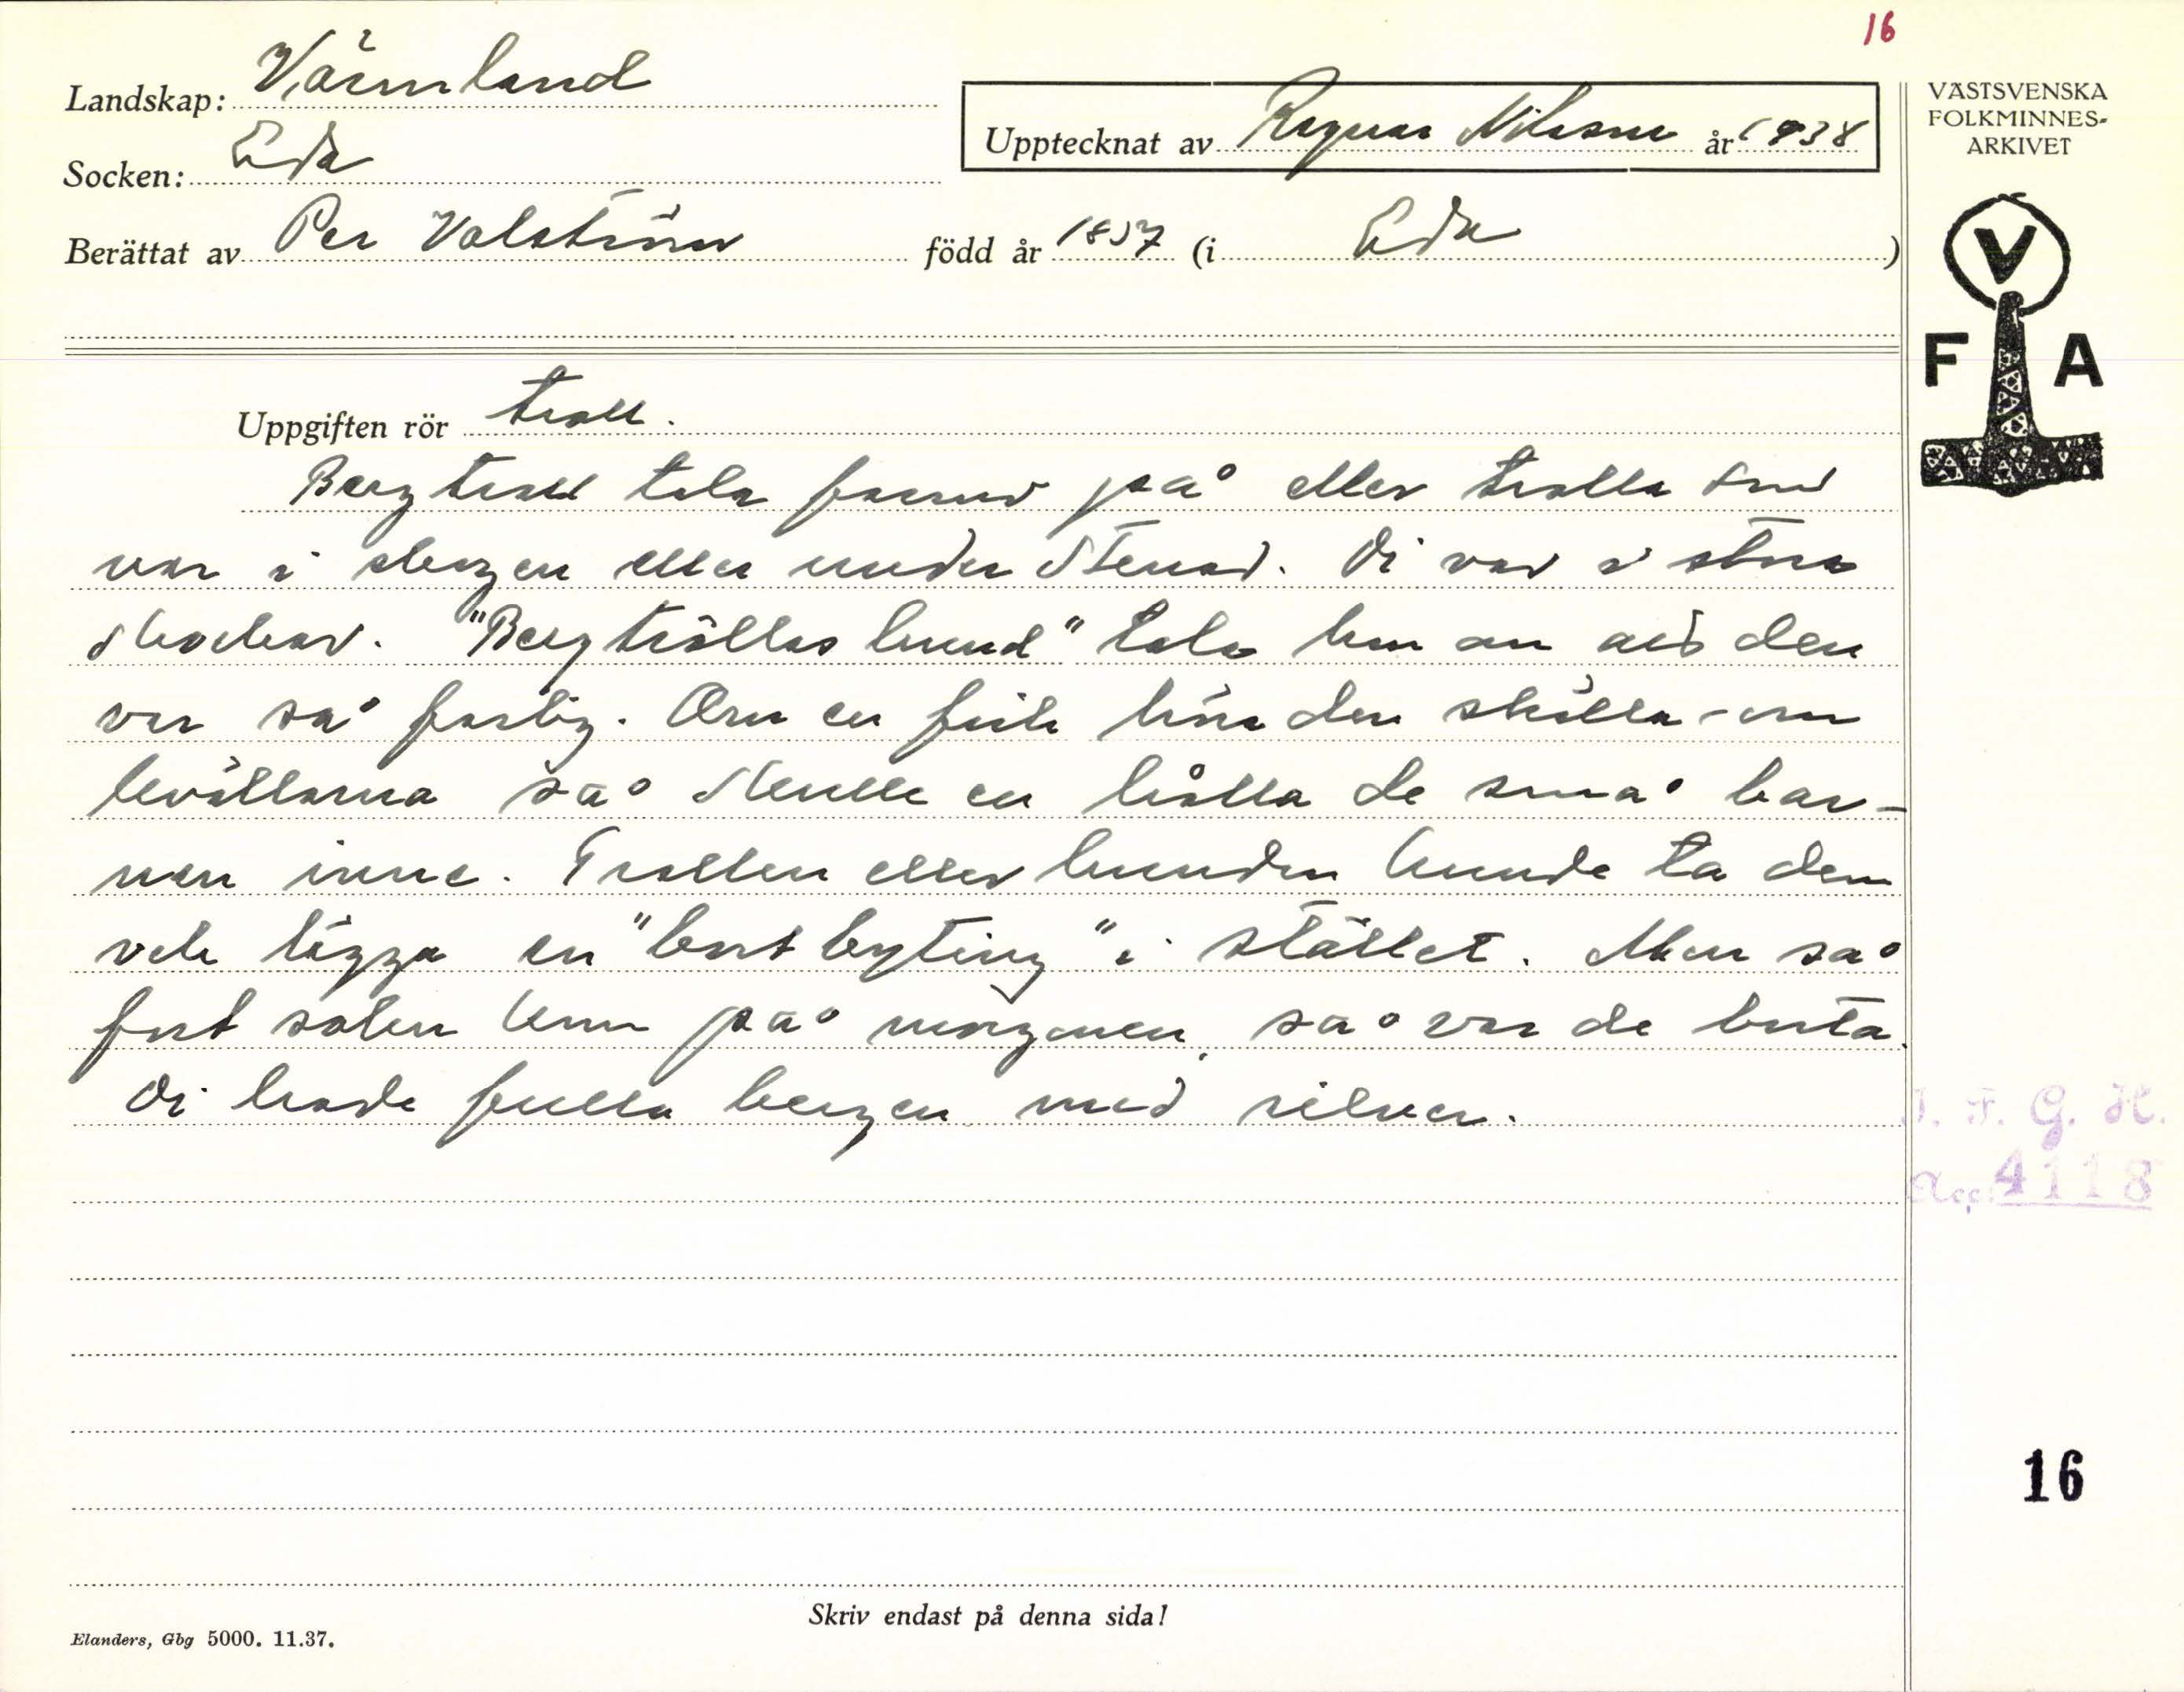 16
Landskap: Värmland
Upptecknat av Ragnar Nilsson år 1938
Socken: Eda
Berättat av Per Valström född år 1857 (i Eda)
VÄSTSVENSKA
FOLKMINNES-
ARKIVET
V
F A
Uppgiften rör troll.
Bergtroll tala på eller trolla som
var i bergen eller under stenar. Di var i stora
skockar. "Bergtrollas hund" tala om att den
var så farlig. Om en fick höra den skälla om
kvällarna så skulle en hålla de små bar-
nen inne. Trollen eller hunden kunde ta dem
och lägga en "bortbyting" i stället. Men så
fort solen kom på morgonen, så var de borta.
Di hade fulla bergen med silver.
I. F. G. H.
Acc. 4118
16
Skriv endast på denna sida!
Elanders, Gbg 5000. 11.37.